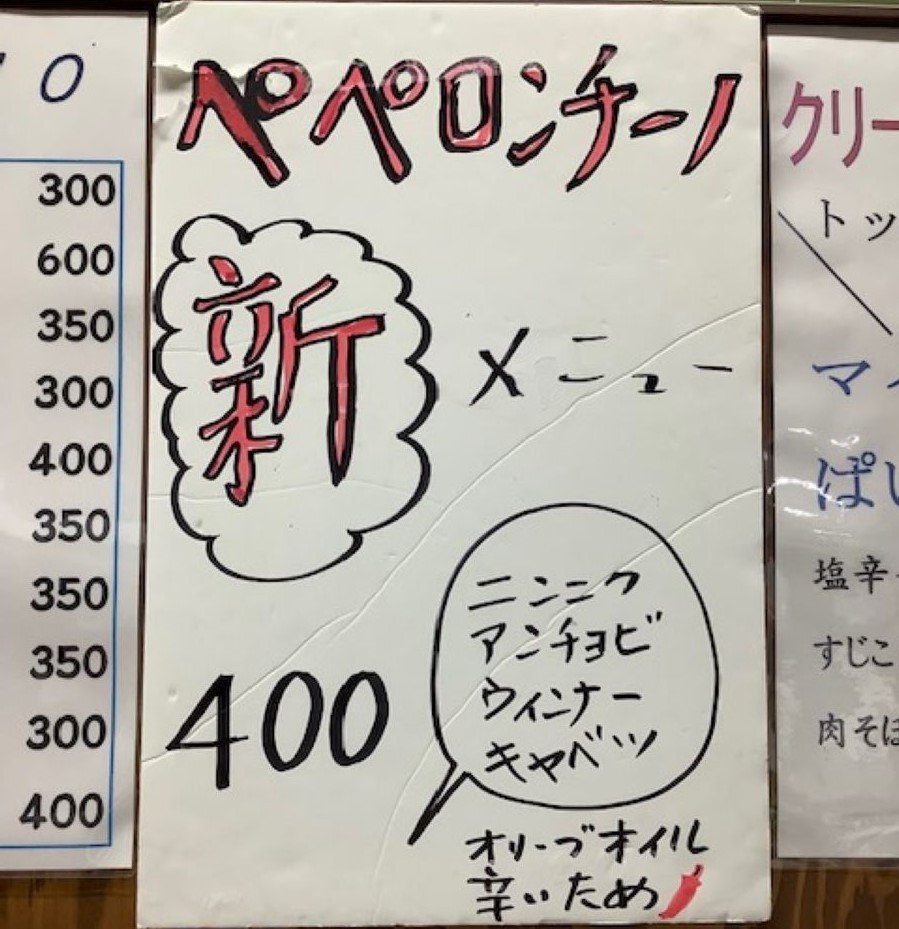 0
300
600
350
300
400
350
350
350
300
400
ペペロンチーノ
新メニュー
400
ニンニク
アンチョビ
ウィンナー
キャベツ
オリーブオイル
辛いため
クリー
トッ
マイ
ぱい
塩辛
すじこ
肉そぼ